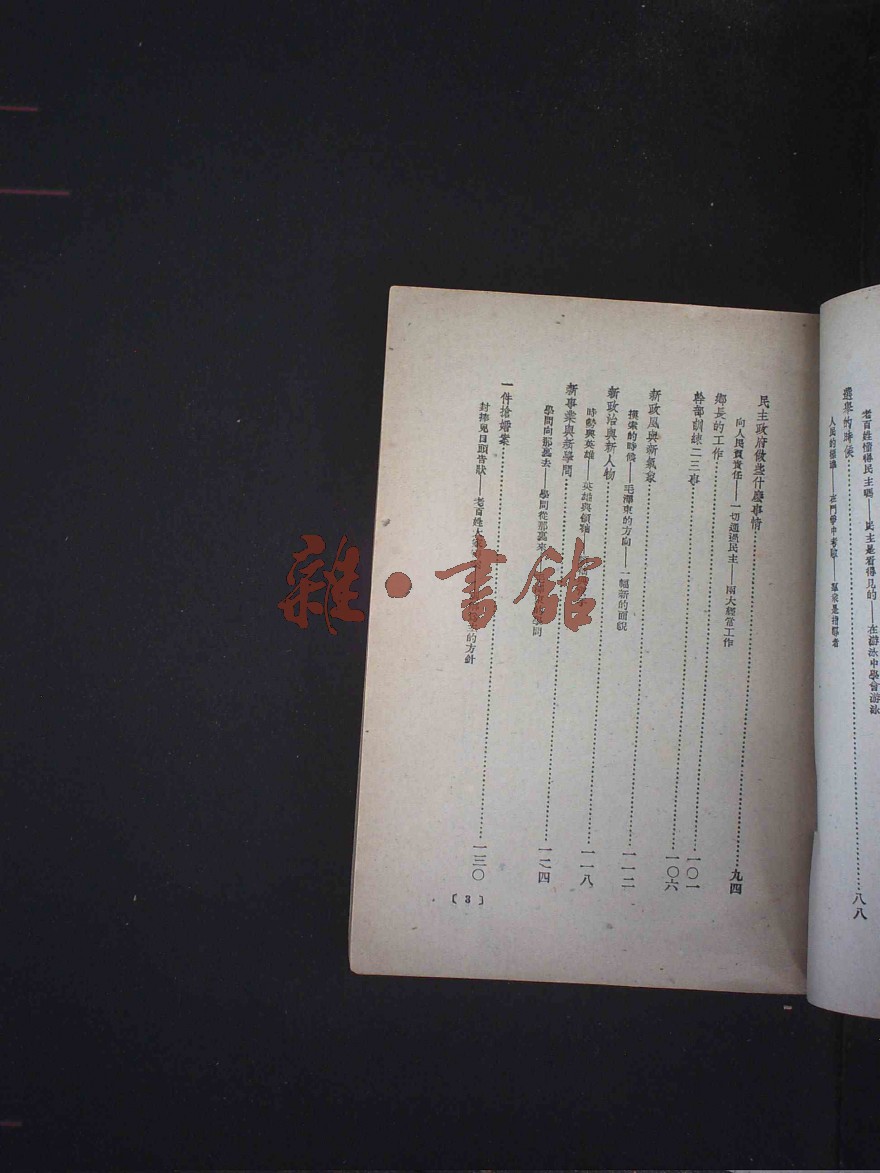 老百姓懂得民主嗎——民主是看得見的——在游泳中學會游泳
選舉的時候……八八
人民的標準
民主政府做些什麼事情……九四
向人民負責任——一切通過民主——兩大經常工作
鄉長的工作……一〇一
幹部訓練二三事……一〇六
新政風與新氣象……一一二
摸索的時候——毛澤東的方向——一幅新的面貌
新政治與新人物……一一八
時勢與英雄——英雄與領袖
新事業與新學問……一二四
學問向那裏去——學問從那裏來
一件搶婚案……一三〇
封捧兒日頭告狀——老百姓大
的方針
〔3〕
雜·書館